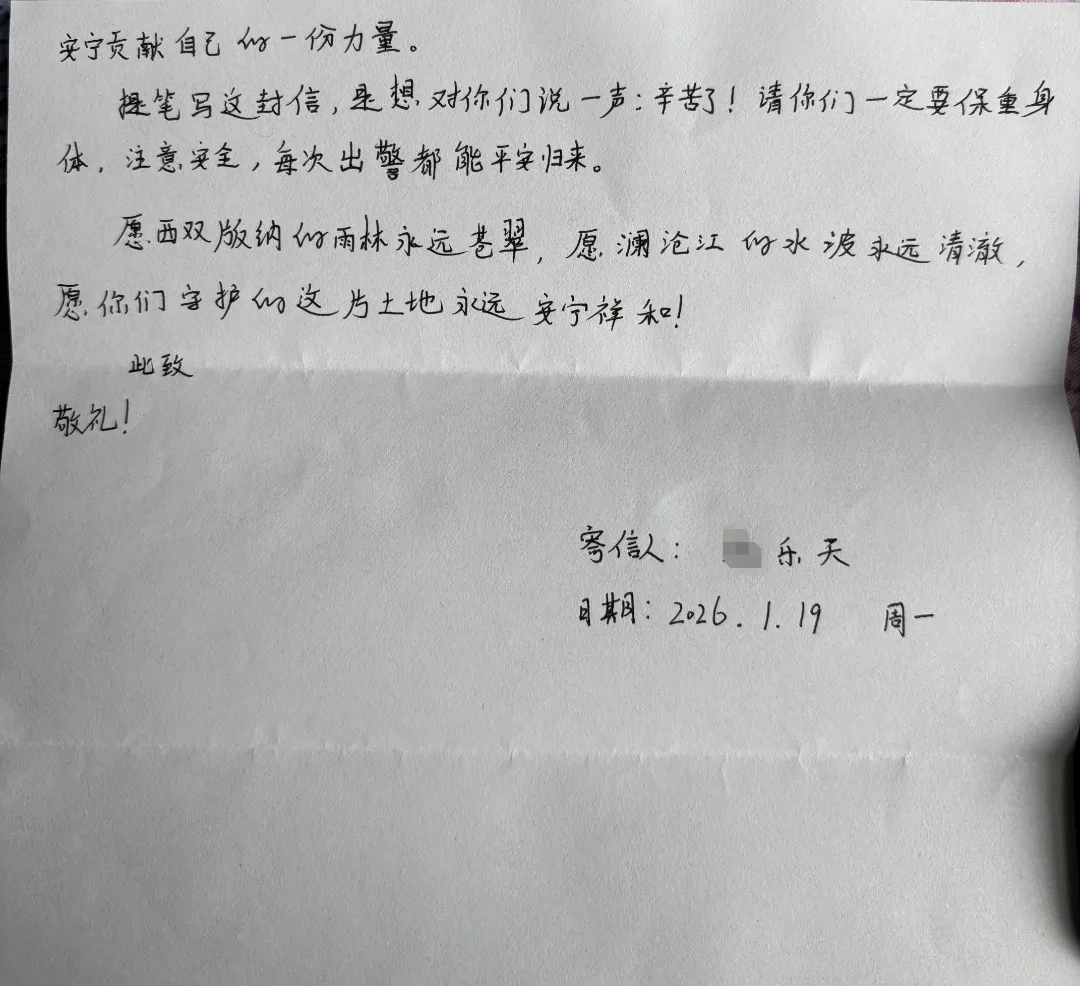 安宁贡献自己的一份力量。
提笔写这封信，是想对你们说一声：辛苦了！请你们一定要保重身
体，注意安全，每次出警都能平安归来。
愿西双版纳的雨林永远苍翠，愿澜沧江的水波永远清澈，
愿你们守护的这片土地永远安宁祥和！
此致
敬礼！
寄信人： 乐天
日期：2026.1.19 周一